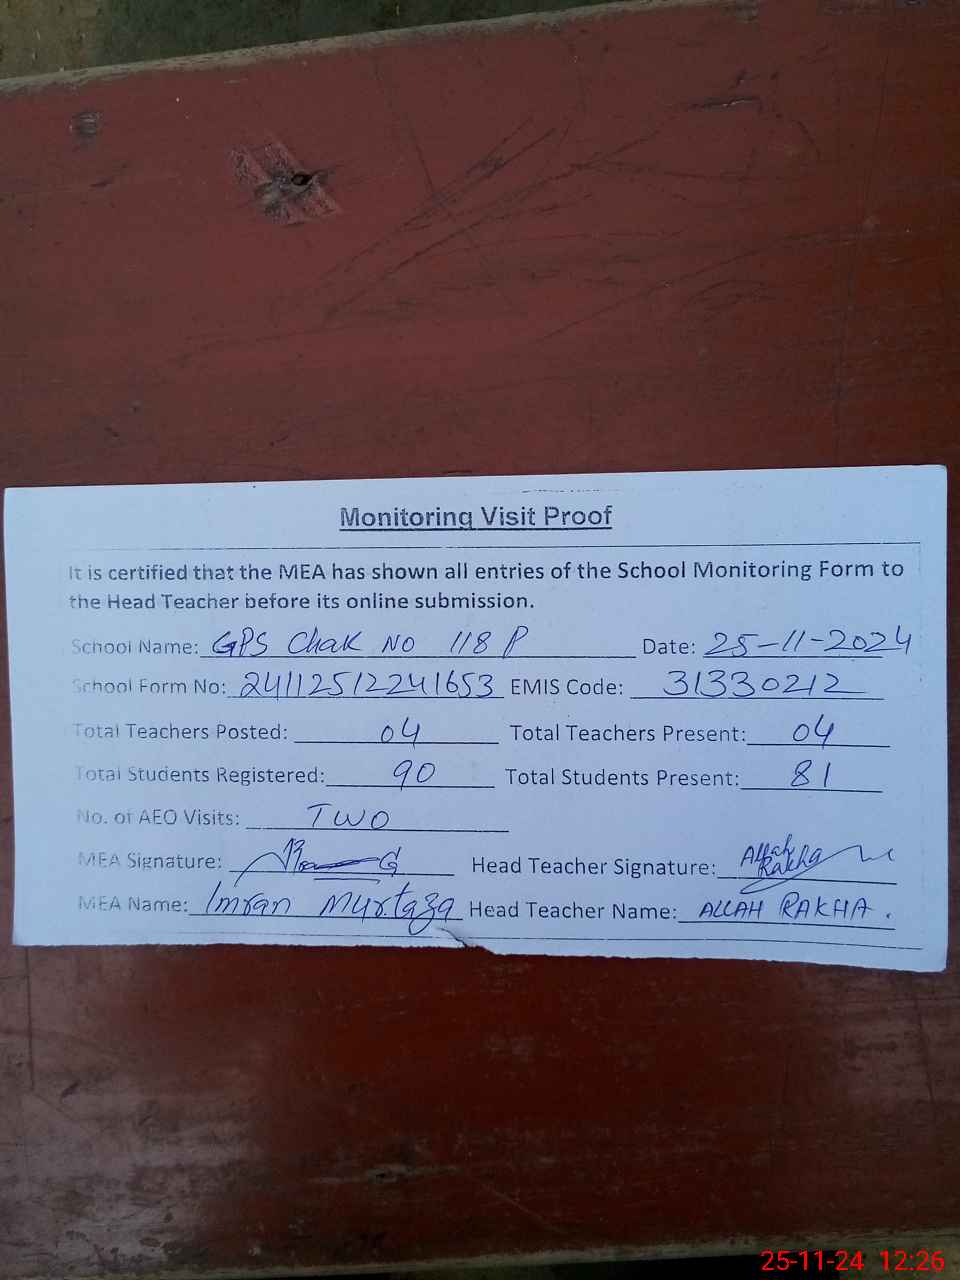 Monitoring Visit Proof
It is certified that the MEA has shown all entries of the School Monitoring Form to
the Head Teacher before its online submission.
School Name: GPS Chak NO 118 P Date: 25-11-2024
School Form No: 241125122241653 EMIS Code: 31330212
Total Teachers Posted: 04 Total Teachers Present: 04
Total Students Registered: 90 Total Students Present: 81
No. of AEO Visits: TWO
MEA Signature: Head Teacher Signature: Allah Rakha
MEA Name: Imran Murtaza Head Teacher Name: ALLAH RAKHA.
25-11-24 12:26